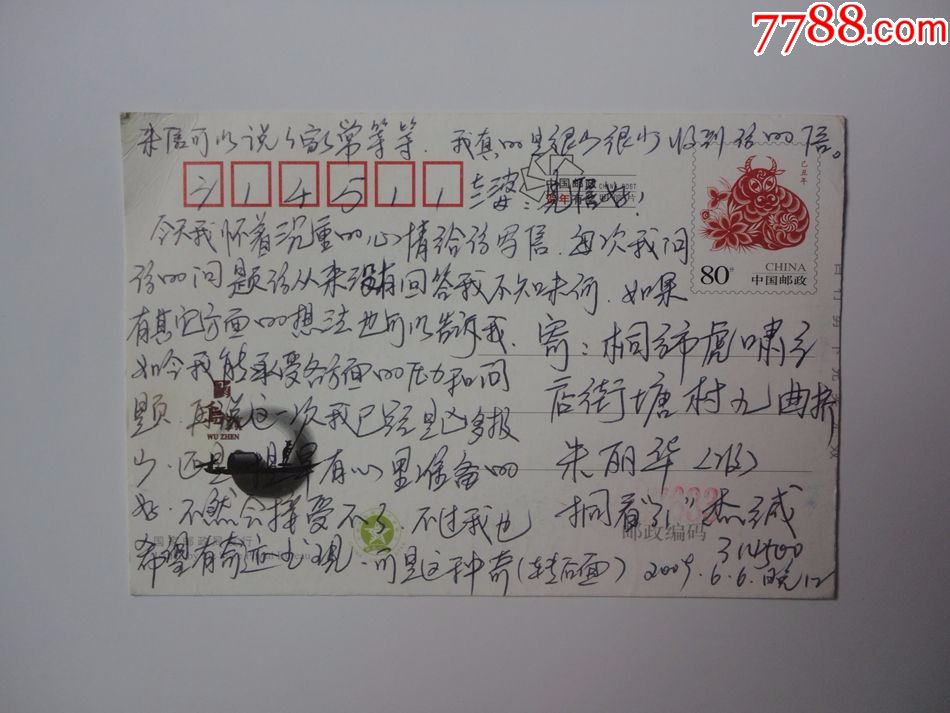 7788.com
来信可以说个家常等等。我真的是很少很少收到你的信。
314511
中国邮政
CHINA POST
己丑年
CHINA
80分
中国邮政
今天我怀着沉重的心情给你写信,每次我问
你的问题你从来没有回答我不知味何.如果
有其它方面的想法也可以告诉我.
如今我能承受各方面的压力和问
题.再说这一次我已经是凶多报
少.还是早有心里准备的
好.不然会接受不了.不过我也
希望有奇迹出现.可是这种奇(转后面)
寄:桐乡市虎啸乡
店街塘村九曲桥
朱丽华(收)
桐看引
314500
2009.6.6.晚12
WU ZHEN
邮政编码